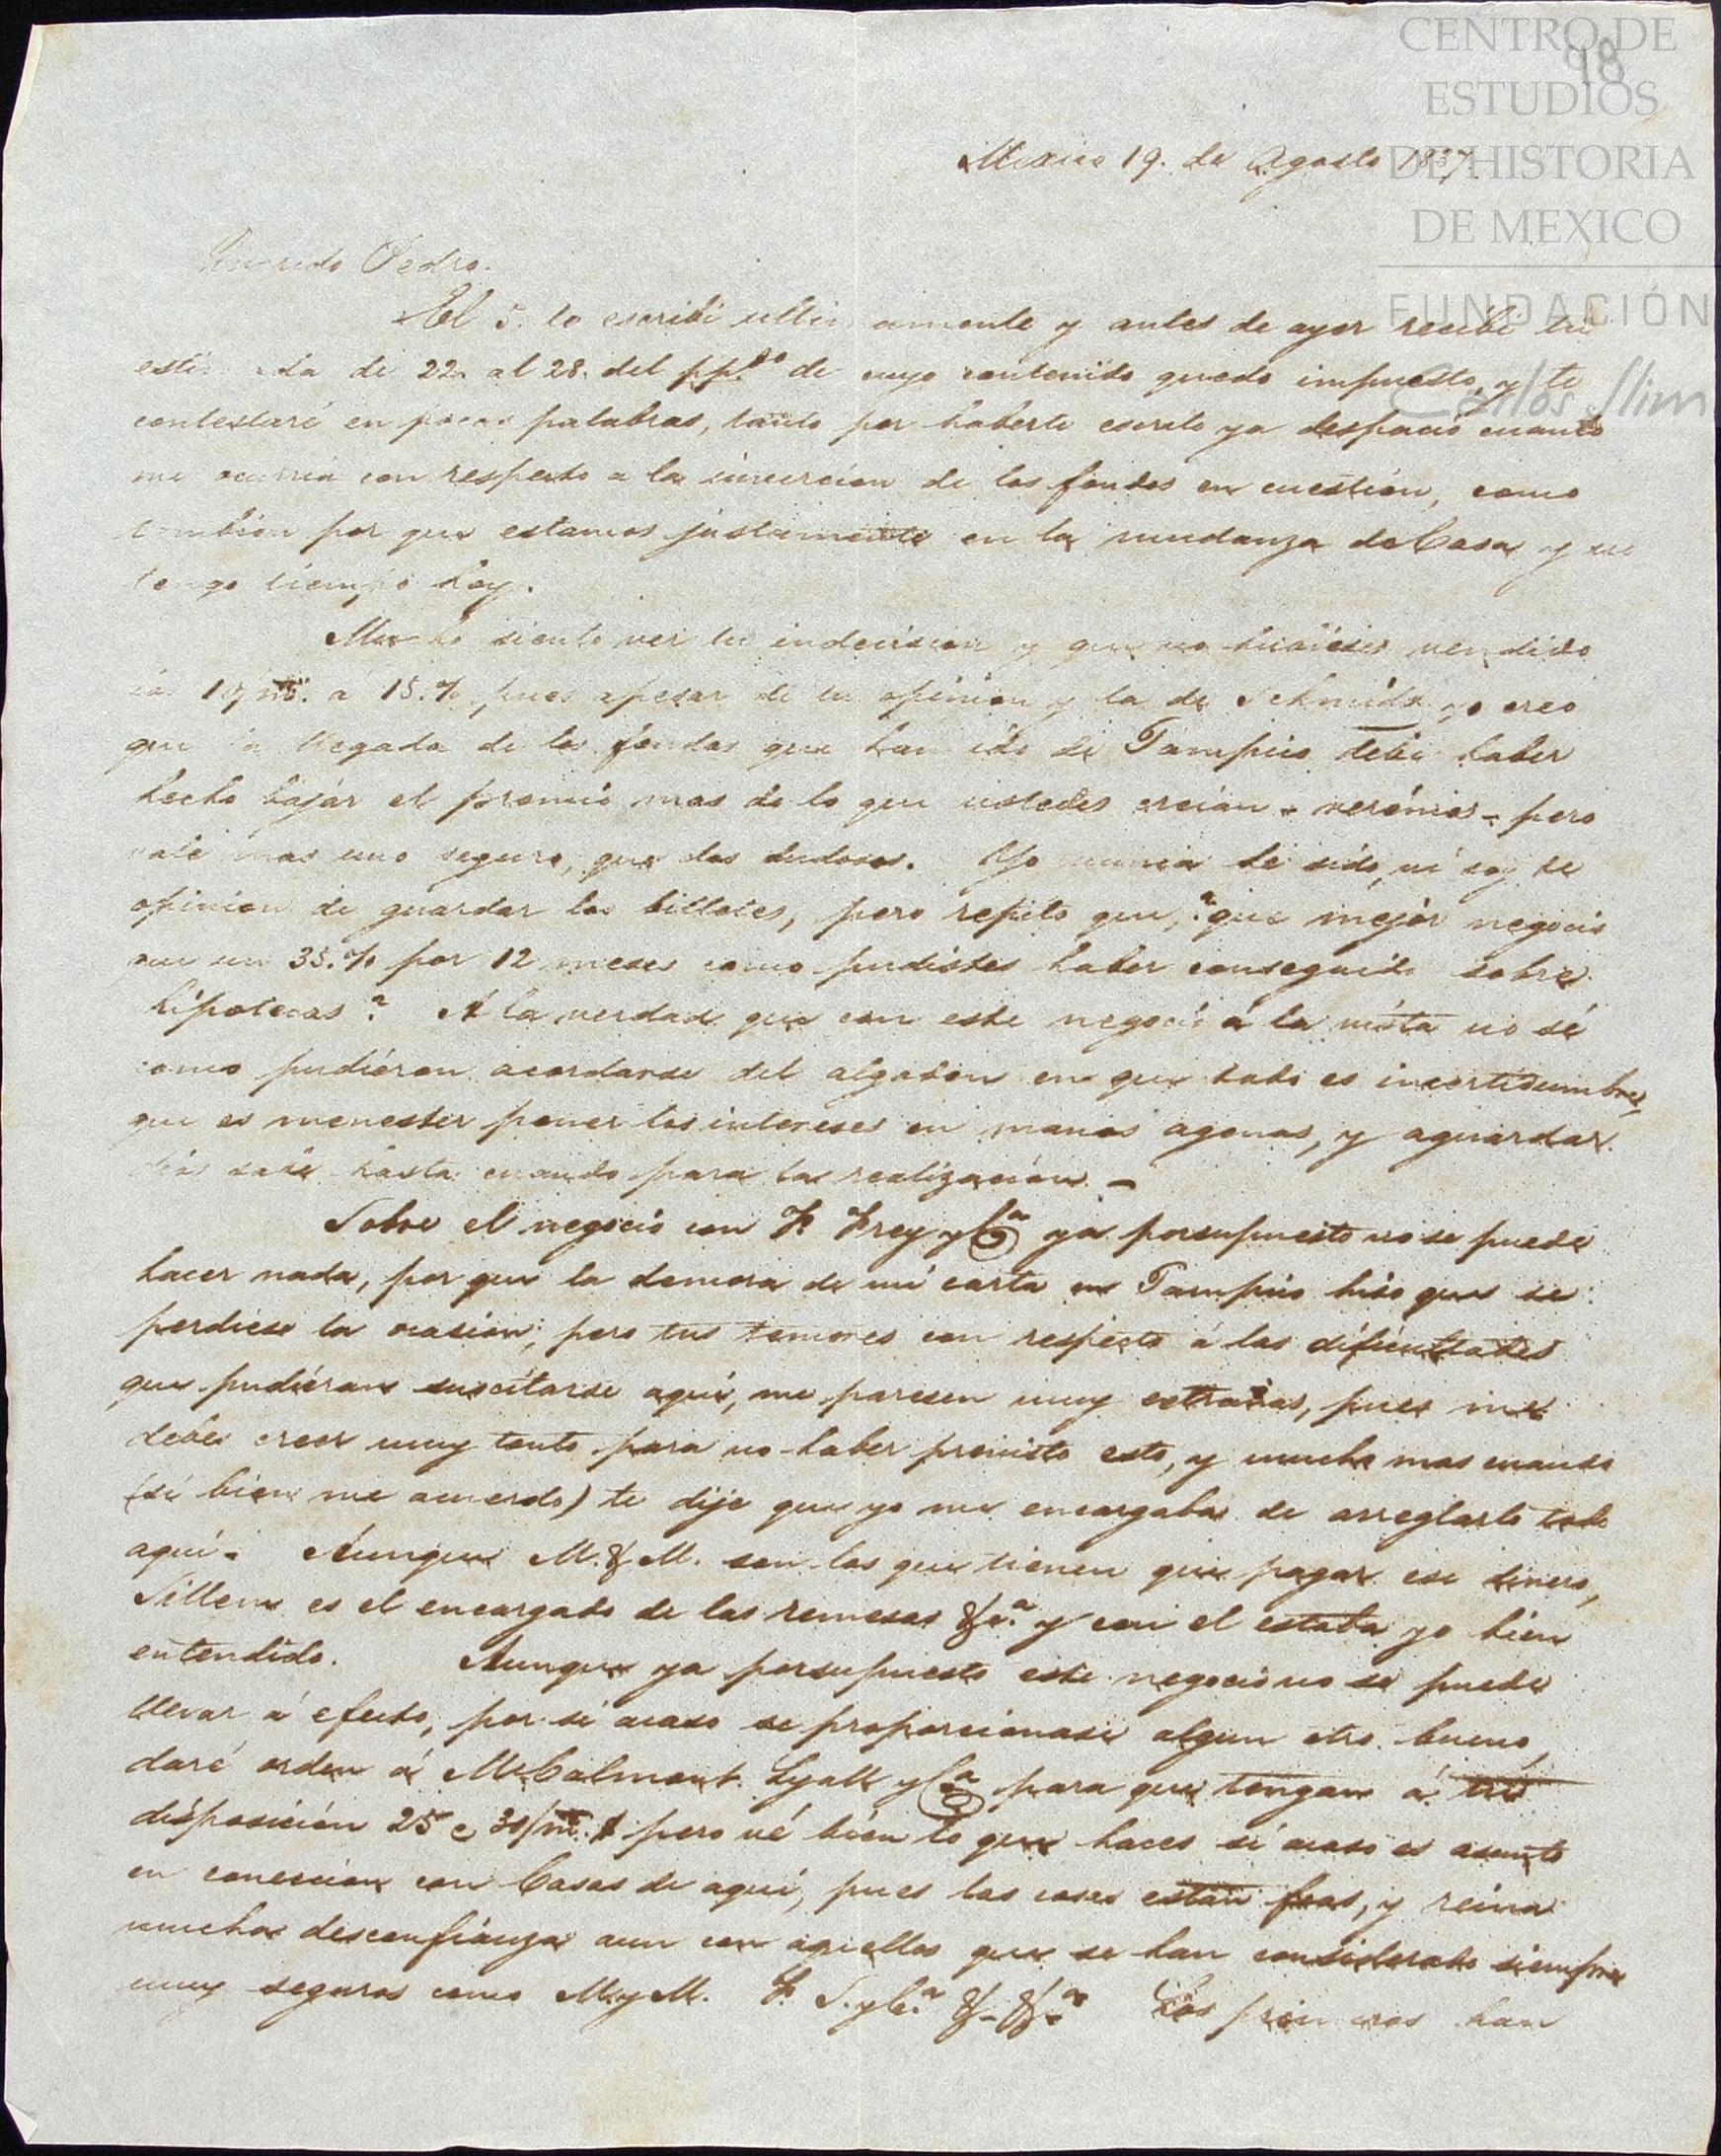 CENTRO DE
ESTUDIOS
DE HISTORIA
DE MEXICO
FUNDACIÓN
Carlos Slim
98
Mexico 19. de Agosto 1837.
Querido Pedro.
El 5. te escribi ultimamente y antes de ayer recibi tu
estimada de 22. al 28. del pp.do de cuyo contenido quedo impuesto, y te
contestaré en pocas palabras, tanto por haberte escrito ya despacio cuanto
me ocurria con respecto a la invercion de los fondos en cuestion, como
tambien por que estamos justamente en la mudanza de Casa y no
tengo tiempo hoy.
Mucho siento ver tu indecision y que no hubieses vendido
a 15.%, pues apesar de tu opinion y la de Schmidt yo creo
que la llegada de los fondos que han ido de Tampico debia haber
hecho bajar el premio mas de lo que ustedes creian - verémos - pero
vale mas uno seguro, que dos dudosos. Yo nunca he sido, ni soy de
opinion de guardar los billetes, pero repito que, ? que mejor negocio
que un 35.% por 12 meses como pudistes haber conseguido sobre
hipotecas ? A la verdad que con este negocio á la vista no sé
como pudiéron acordarse del algodon en que todo es incertidumbre,
que es menester poner los intereses en manos agenas, y aguardar
dios sabe hasta cuando para la realizacion. -
Sobre el negocio con F. Frey y Ca ya porsupuesto no se puede
hacer nada, por que la demora de mi carta en Tampico hiso que se
perdiese la ocasion; pero tus temores con respecto á las dificultades
que pudiéran suscitarse aqui, me paresen muy estrañas, pues me
debes creer muy tonto para no haber previsto esto, y mucho mas cuando
(si bien me acuerdo) te dije que yo me encargaba de arreglarlo todo
aqui. Aunque M. & M. son los que tienen que pagar ese dinero,
Sillem es el encargado de las remesas &c.a y con el estaba yo bien
entendido. Aunque ya porsupuesto este negocio no se puede
llevar á efecto, por si acaso se proporcionase algun otro bueno,
daré orden á McCalmont Lyall y Ca para que tengan á tu
disposicion 25 a 30/m. $ pero vé bien lo que haces si acaso es asunto
en coneccion con Casas de aqui, pues las cosas están feas, y reina
mucha desconfianza aun con aquellos que se han considerado siempre
muy seguros como M. y M. F. S. y C.a &. &.a Los primeros han